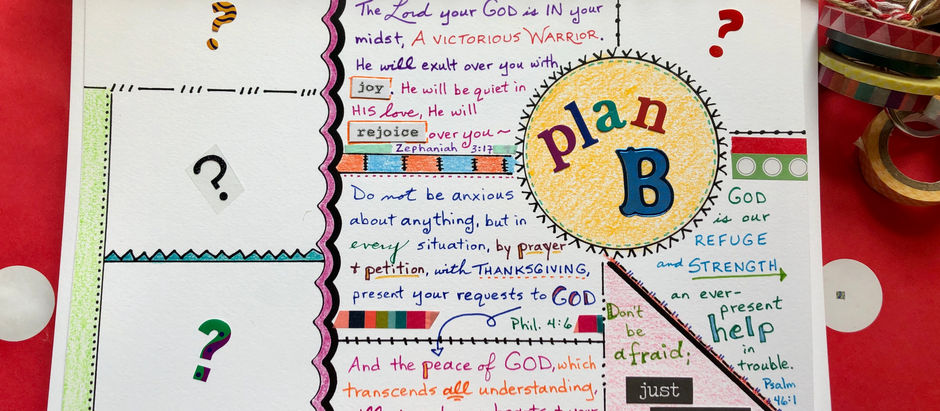 ?
?
?
The Lord your GOD is IN your
midst, A VICTORIOUS WARRIOR.
He will exult over you with
joy. He will be quiet in
HIS love, He will
rejoice over you~
Zephaniah 3:17
Do not be anxious
about anything, but in
every situation, by prayer
+ petition, with THANKSGIVING,
present your requests to GOD
Phil. 4:6
And the peace of GOD, which
transcends all understanding,
?
plan
B
GOD
is our
REFUGE
and STRENGTH
an ever-
present
help
in
trouble.
Psalm
46:1
Don't
be
afraid;
just